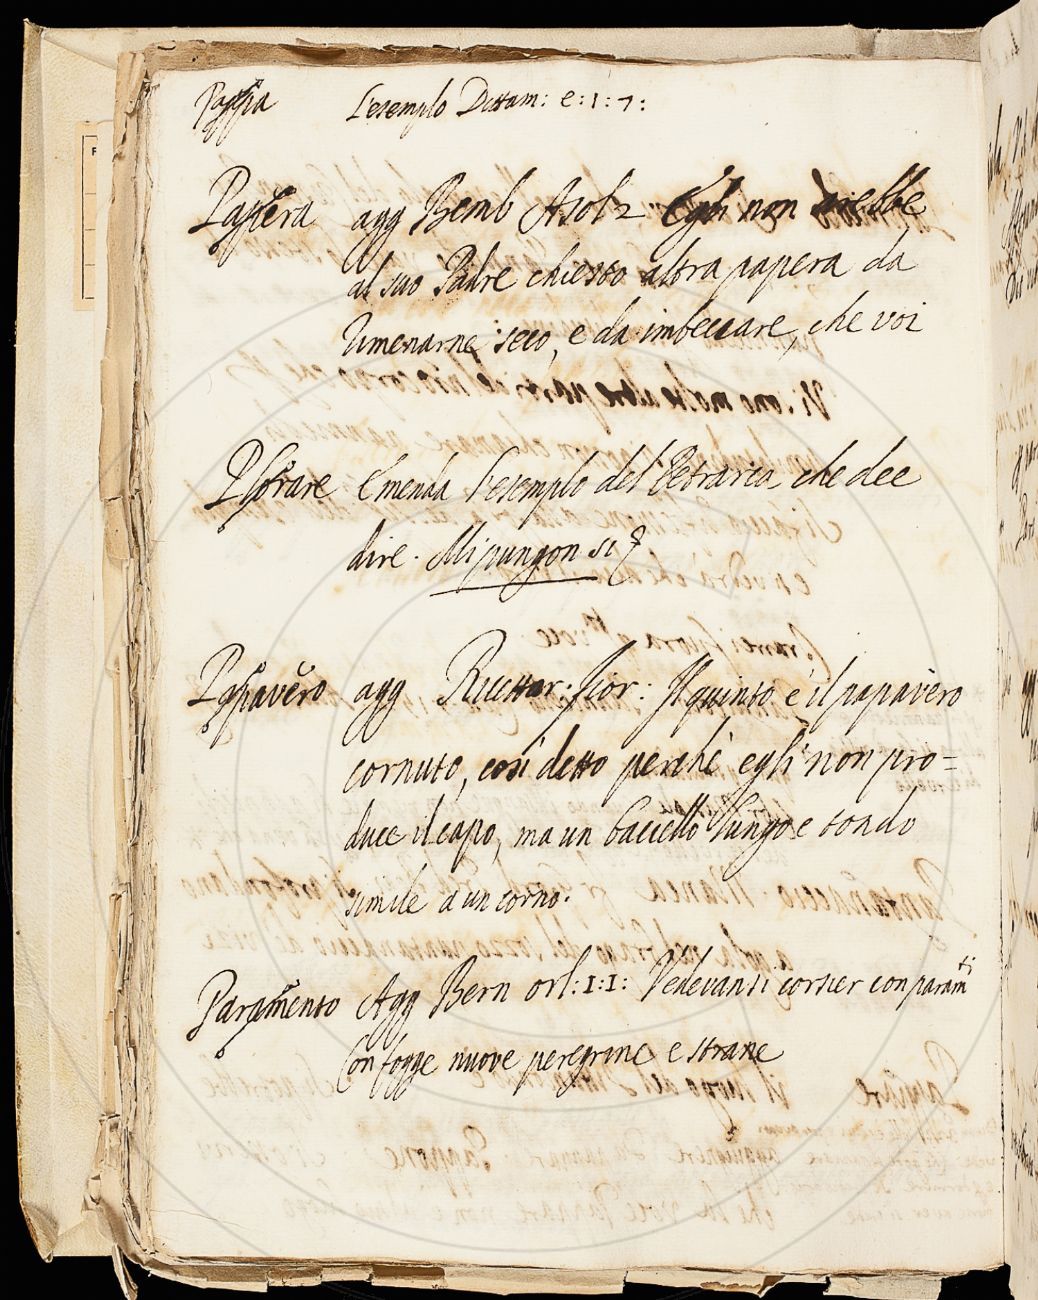 Pappa L'esemplo Dittam: e: 1: 7:
Papera agg Bemb Asol 2 Egli non avrebbe
al suo Padre chiesto altra papera da
rimenarne seco, e da imbeccare, che voi
Plorare Emenda l'esemplo del Petrarca che dee
dire. Mi pungon si
Papavero agg Ricettar: fior: Il quinto e il papavero
cornuto, cosi detto perche egli non pro=
duce il capo, ma un baccello lungo e tondo
simile a un corno.
Paramento Agg Bern orl: 1: 1: Vedevansi corsier con paramti
Con fogge nuove peregrine e strane